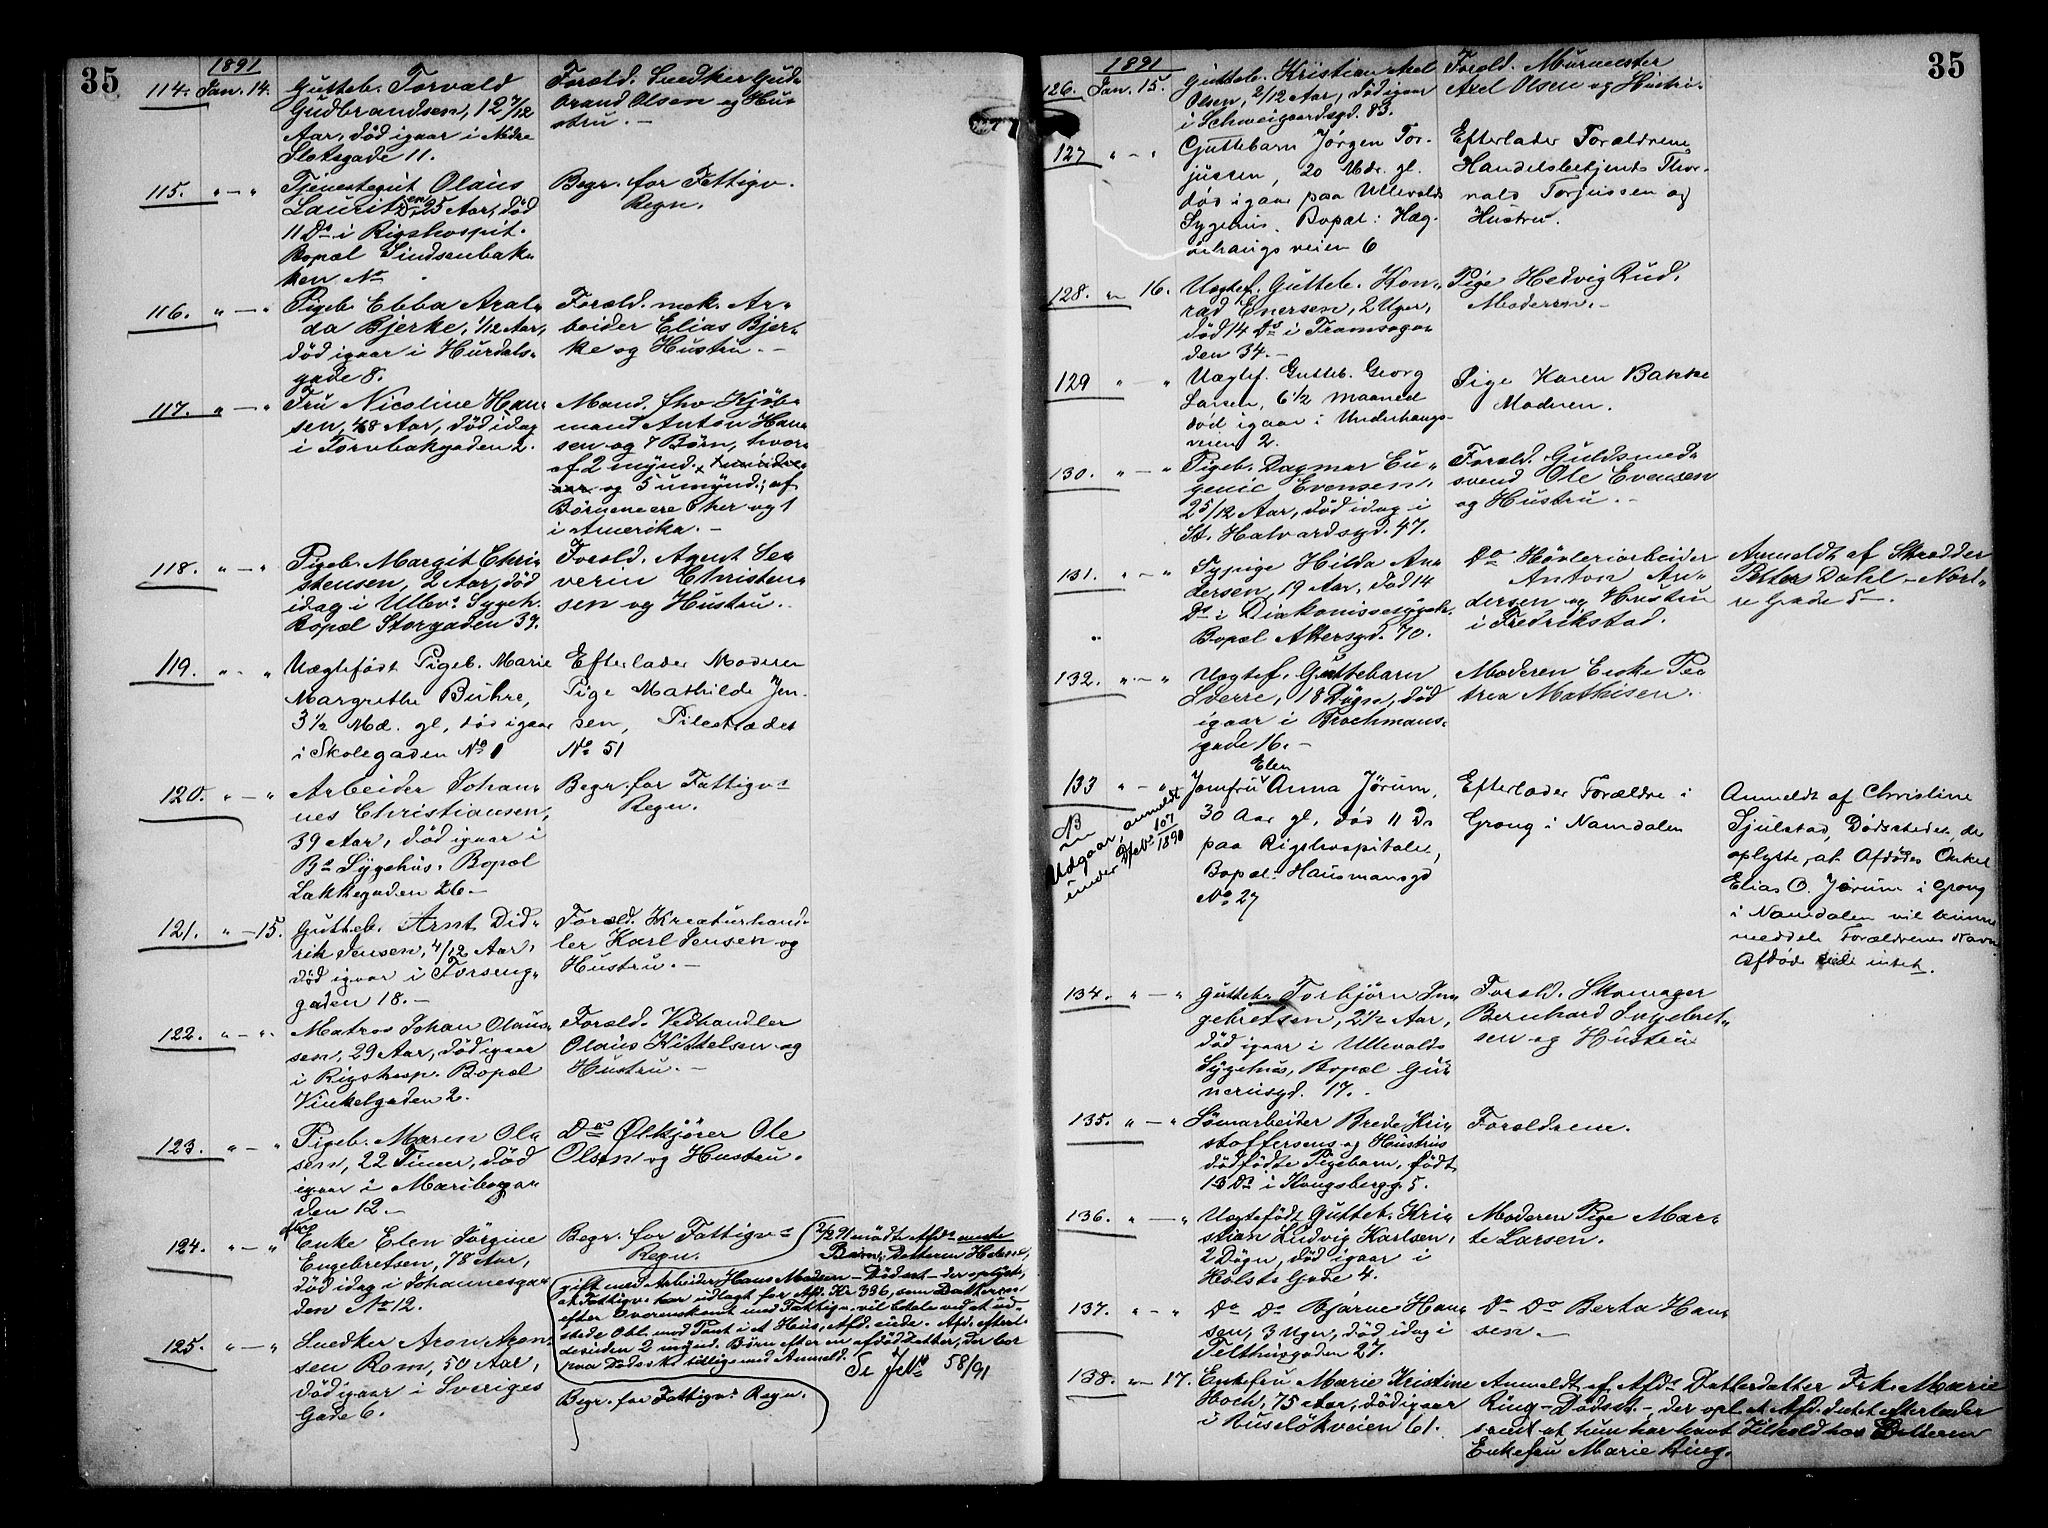 35
1891
114. Jan. 14. Gutteb. Torvald
Gudbrandsen, 12 7/12
Aar, död igaar i Nedre
Slotsgade 11.
Foræld. Snedker Gud-
brand Olsen og Hus-
stru. -
115. " - " Tjenestegut Olaus
Lauritzen 25 Aar, död
11 Ds i Rigshospit.
Bopæl Sindsenbak-
ken No .
Begr. for Fattigv.
Regn.
116. " - " Pigeb. Ebba Aral-
da Bjerke, 1/12 Aar,
död igaar i Hurdals-
gade 8.
Foræld. mek. Ar-
beider Elias Bjer-
ke og Hustru. -
117. " - " Fru Nicoline Han-
sen, 48 Aar, död idag
i Tornbakgaden 2.
Mand, fhv Kjöb-
mand Anton Han-
sen og 7 Börn, hvor-
af 2 mynd.
og 5 umynd.; af
Börnene ere 6 her og 1
i Amerika. -
118. " - " Pigeb. Margit Chri-
stensen, 2 Aar, död
idag i Ullev. Sygeh.
Bopæl Storgaden 39.
Foræld. Agent Se-
verin Christen-
sen og Hustru.
119. " - " Uægtefödt Pigeb. Marie
Margrethe Buhre,
3 1/2 Md. gl., död igaar
i Skolegaden No 1
Efterlader Moderen
Pige Mathilde Jen-
sen, Pilestrædet
No 51
120. " - " Arbeider Johan-
nes Christiansen,
39 Aar, död igaar i
Bs Sygehus. Bopæl
Lakkegaden 26. -
Begr. for Fattigv.
Regn.
121. " - 15. Gutteb. Arnt Did-
rik Jensen, 4/12 Aar,
död igaar i Torseng-
gaden 18. -
Foræld. Kreaturhand-
ler Karl Jensen og
Hustru. -
122. " - " Matros Johan Olaus-
sen, 29 Aar, död igaar
i Rigshosp. Bopæl
Vinkelgaden 2.
Foræld. Vedhandler
Olaus Kittelsen og
Hustru. -
123. " - " Pigeb. Maren Ol-
sen, 22 Timer, död
igaar i Mariboga-
den 12. -
Do Ölkjörer Ole
Olsen og Hustru.
124. " - " Enke Elen Jörgine
Engebretsen, 78 Aar,
död idag i Johannesga-
den No 12.
Begr. for Fattigv.
Regn.
2/2 91 mödte Afdes eneste
Barn, Datteren Helene,
gift med Arbeider Hans Madsen - Dödsst - der oplyste,
at Fattigv. har udlagt for Afd. Kr. 396, som Datteren
efter Overenskomst med Fattigv. vil betale ved at ud-
stede Obl. mod Pant i et Hus, Afd. eiede. Afd. efterl.
desuden 2 mynd. Börn efter en afdöd Datter, der bor
paa Dödsst. tilligemed Anmeld.
Se JNo 58/91
125. " - " Snedker Aron Aron-
sen Rom, 50 Aar,
död igaar i Sveriges
Gade 6.
Begr. for Fattigv. Regn.
35
1891
126. Jan. 15. Gutteb. Kristian Axel
Olsen, 2/12 Aar, död igaar
i Schweigaardsgd. 83.
Foræld. Murmester
Axel Olsen og Hustru.
127 " - " Guttebarn Jörgen Tor-
jussen, 20 Mdr. gl.
död igaar paa Ullevolds
Sygehus. Bopæl: Hæg-
dehaugsveien 6
Efterlader Forældrene
Handelsbetjent Thor-
vald Torjussen og
Hustru.
128. " 16. Uægtef. Gutteb. Kon-
rad Enersen, 2 Uger,
död 14 Ds i Tromsöga-
den 34. -
Pige Hedvig Rud,
Moderen. -
129 " - " Uægtef. Gutteb. Georg
Larsen, 6 1/2 Maaned
död igaar i Underhaugs-
veien 2.
Pige Karen Bakke
Moderen.
130. " - " Pigeb. Dagmar Eu-
genie Evensen,
2 5/12 Aar, död idag i
St. Halvardsgd. 47.
Foræld. Guldsmed-
svend Ole Evensen
og Hustru. -
131. " - " Sypige Hilda An-
dersen, 19 Aar, död 14
Ds i Diakonissesygeh.
" Bopæl Akersgd. 70.
Do Hövleriarbeider
Anton An-
dersen og Hustru
i Fredrikstad.
Anmeldt af Skrædder
Petter Dahl - Nord-
re Gade 5 -.
132. " - " Uægtef. Guttebarn
Sverre, 18 Dögn, död
igaar i Brochmans-
gade 16. -
Moderen Enke Pe-
trea Mathisen.
133 " - " Jomfru Elen Anna Jörum,
30 Aar gl., död 11 Ds
paa Rigshospitalet,
Bopæl: Hausmansgd
No 27
NB
Udgaar, anmeldt
under JNo 107
1890
Efterlader Forældre i
Grong i Namdalen
Anmeldt af Christine
Sjulstad, Dödsstedet, der
oplyste, at Afdödes Onkel
Elias O. Jörum i Grong
i Namdalen vil kunne
meddele Forældrenes Navn.
Afdöde eiede intet.
134. " - " Gutteb. Torbjörn In-
gebretsen, 2 1/2 Aar,
död igaar i Ullevolds
Sygehus, Bopæl Gu-
nerusgd. 17. -
Foræld. Skomager
Bernhard Ingebret-
sen og Hustru
135. " - " Sömarbeider Brede Kri-
stoffersens og Hustrus
dödfödte Pigebarn, födt
13 Ds i Kongsbergg. 5.
Forældrene.
136. " - " Uægtefödt Gutteb. Kri-
stian Ludvig Karlsen,
2 Dögn, död igaar i
Holsts Gade 4.
Moderen Pige Mar-
te Larsen.
137. " - " Do Do Bjarne Han-
sen, 3 Uger, död idag i
Telthusgaden 27.
Do Do Berta Han-
sen. -
138. " - 17. Enkefru Marie Kristine
Hoch, 75 Aar, död igaar
i Ruselökveien 61.
Anmeldt af Afds Datterdatter Frk. Marie
Ring - Dödsst. - der opl. at Afd. intet efterlader
samt at hun har havt Tilhold hos Datteren
Enkefru Marie Ring.